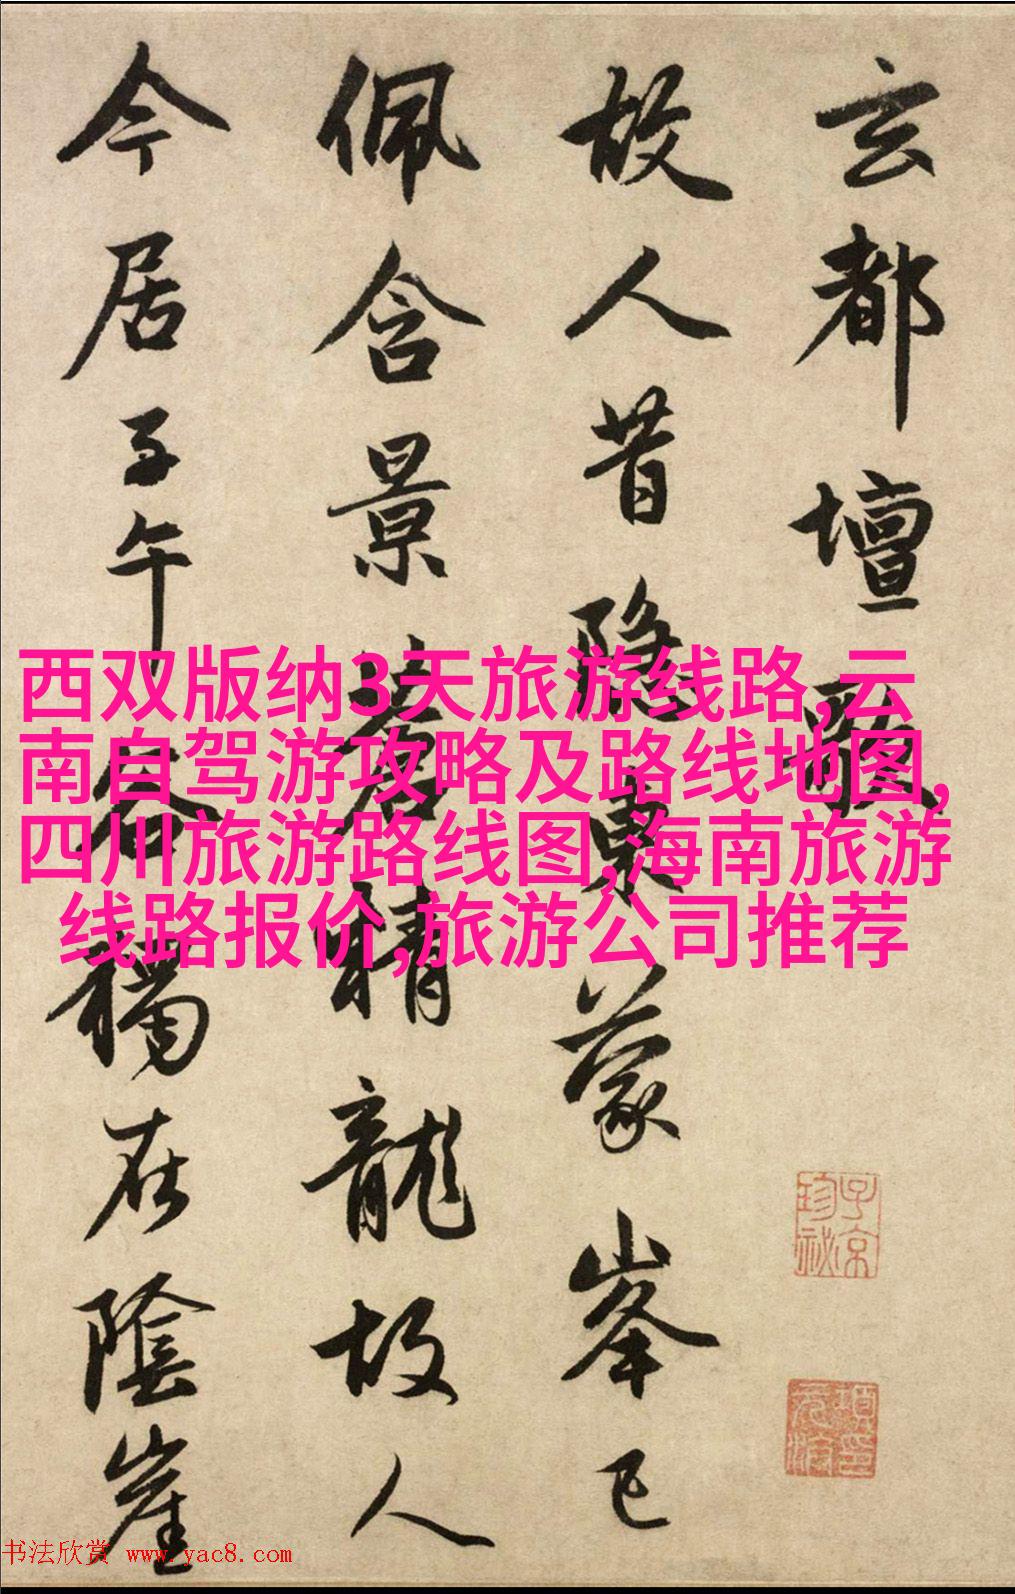 玄都壇歌
故人昔隱東蒙峯已
佩含景蒼精龍故人
今居子午谷獨在陰崖
西双版纳3天旅游线路,云
南自驾游攻略及路线地图,
四川旅游路线图,海南旅游
线路报价,旅游公司推荐
子京
珍祕
项元汴印
书法欣赏 www.yac8.com